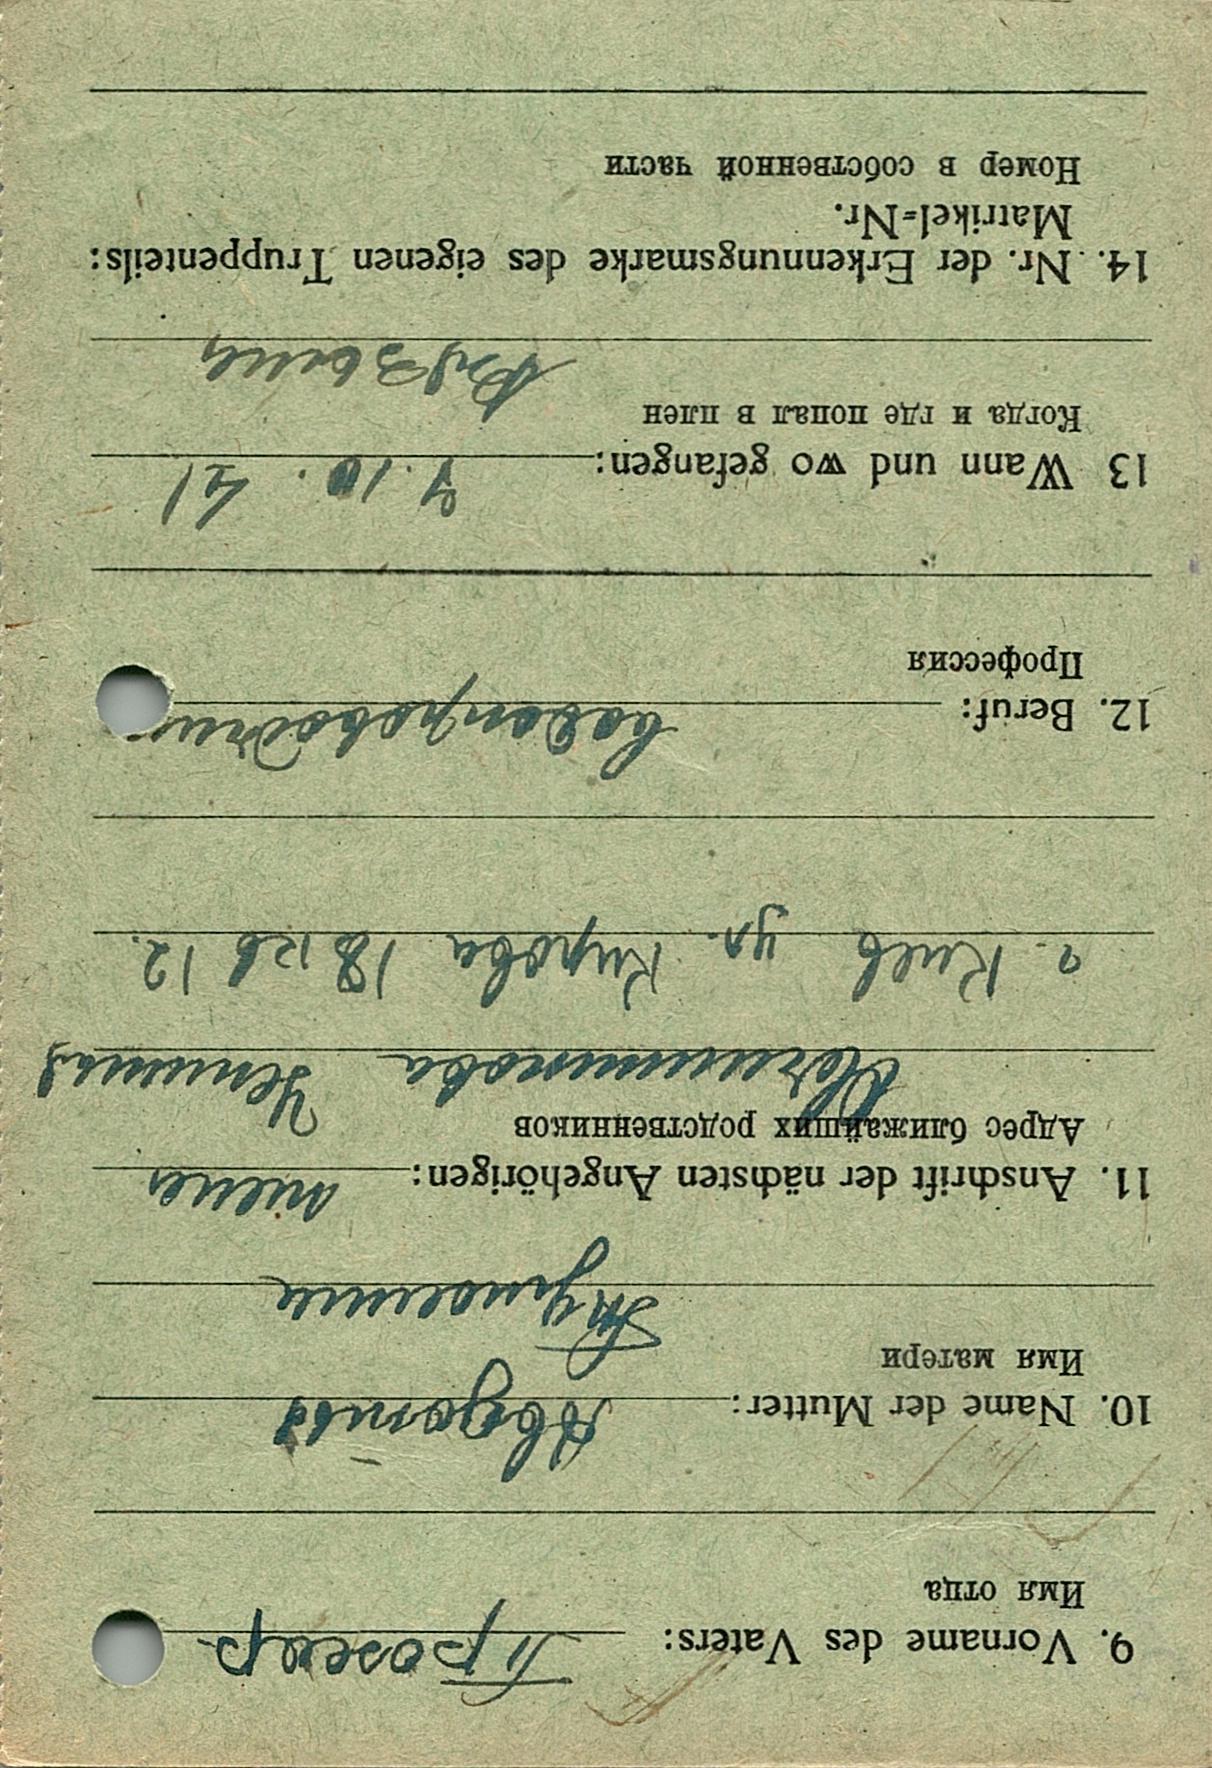 9. Vorname des Vaters: Прохор
Имя отца
10. Name der Mutter: Авдотья
Имя матери
11. Anschrift der nächsten Angehörigen:
Адрес ближайших родственников
г. Киев ул. Кирова 18 кв 12.
12. Beruf:
Профессия
13 Wann und wo gefangen: 7. 10. 41
Когда и где попал в плен
14. Nr. der Erkennungsmarke des eigenen Truppenteils:
Matrikel=Nr.
Номер в собственной части